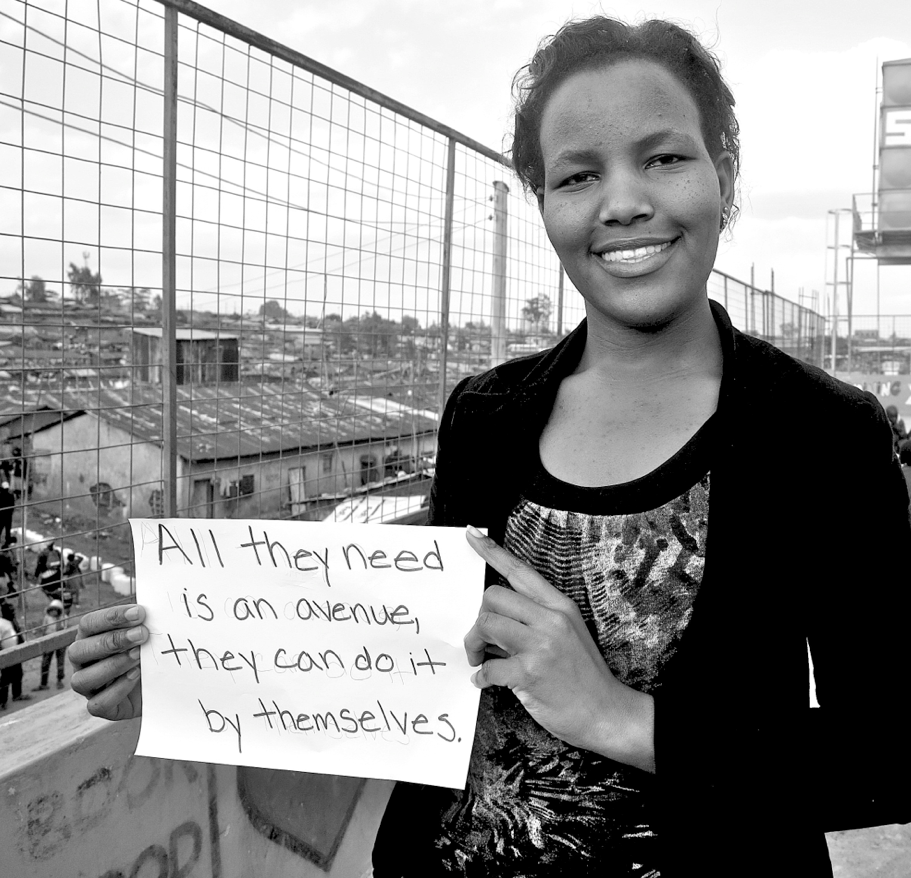 All they need
is an avenue,
they can do it
by themselves.
S